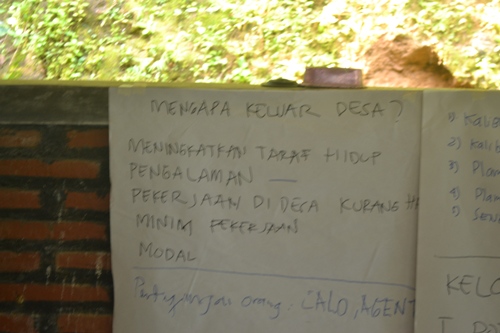 MENGAPA KELUAR DESA?
MENINGKATKAN TARAF HIDUP
PENGALAMAN —
PEKERJAAN DI DESA KURANG
MINIM PEKERJAAN
MODAL
orang, CALO, AGEN
1)
2) Kalib
3) Plam
4) Plam
5)
KELO